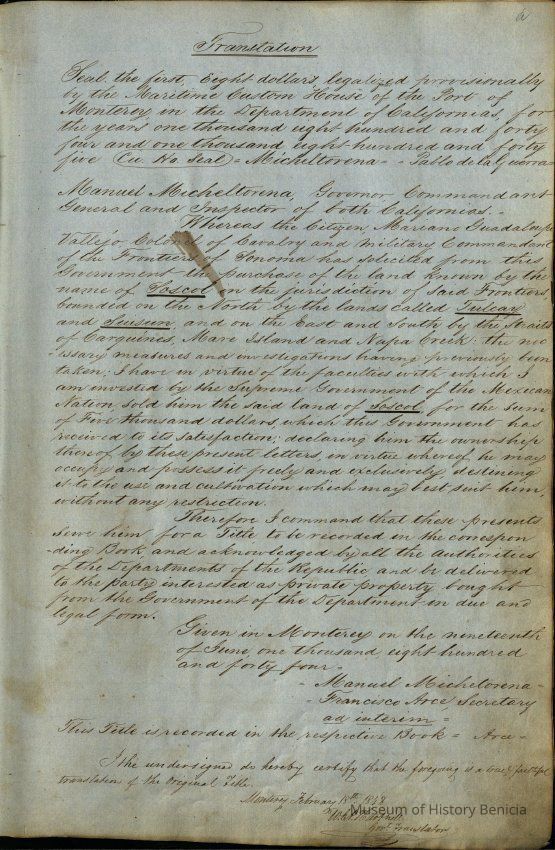 6
Translation
Seal the first, Eight dollars, legalized provisionally
by the Maritime Custom House of the Port of
Monterey in the Department of Californias, for
the years one thousand eight hundred and forty
four and one thousand eight hundred and forty
five (Cu. Ho. Seal) = Micheltorena - - Pablo de la Guerra
Manuel Micheltorena, Governor Commandant
General and Inspector of both Californias. -
Whereas the Citizen Mariano Guadalupe
Vallejo Colonel of Cavalry and Military Commandant
of the Frontiers of Sonoma has solicited from this
Government the purchase of the land known by the
name of Soscol on the jurisdiction of said Frontiers,
bounded on the North by the lands called Tulcay
and Suisun, and on the East and South by the Straits
of Carquines, Mare Island and Napa Creek: the nec
essary measures and investigations having previously been
taken; I have in virtue of the faculties with which I
am invested by the Supreme Government of the Mexican
Nation, sold him the said land of Soscol for the sum
of Five thousand dollars, which this Government has
received to its satisfaction; declaring him the ownership
thereof by these present letters, in virtue whereof he may
occupy and possess it freely and exclusively destining
it to the use and cultivation which may best suit him,
without any restriction.
Therefore I command that these presents
serve him for a Title to be recorded in the correspon
-ding Book, and acknowledged by all the authorities
of the Departments of the Republic and be delivered
to the party interested as private property bought
from the Government of the Department in due and
legal form.
Given in Monterey on the nineteenth
of June, one thousand eight hundred
and forty four -
- Manuel Micheltorena -
- Francisco Arce Secretary
ad interim =
This Title is recorded in the respective Book = Arce -
I the undersigned do hereby certify that the foregoing is a true & faithful
translation of the Original Title.
Monterey February 18th 1848
Govt. Translator
Museum of History Benicia